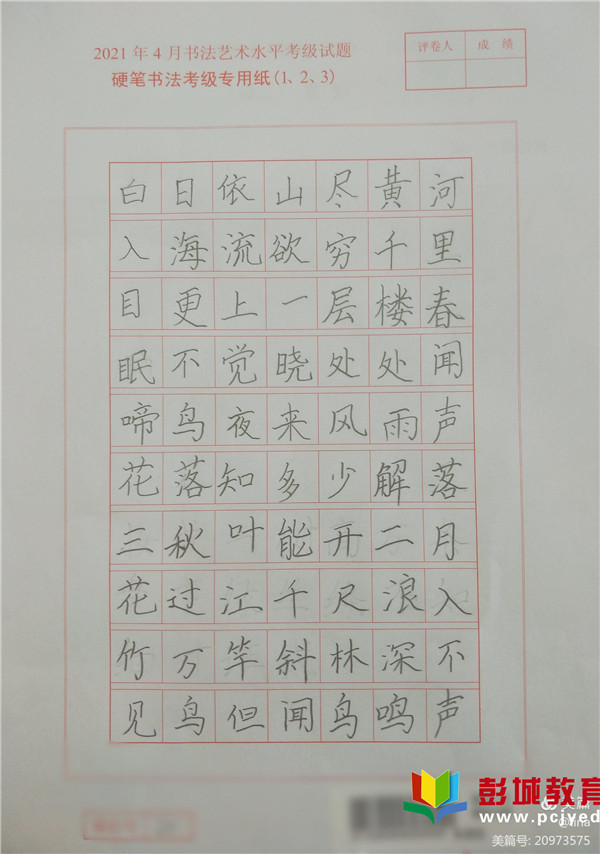 2021年4月书法艺术水平考级试题
硬笔书法考级专用纸(1、2、3)
评卷人 成绩
白日依山尽黄河
入海流欲穷千里
目更上一层楼春
眠不觉晓处处闻
啼鸟夜来风雨声
花落知多少解落
三秋叶能开二月
花过江千尺浪入
竹万竿斜林深不
见鸟但闻鸟鸣声
彭城教育
www.pcjyed
美篇号: 20973575